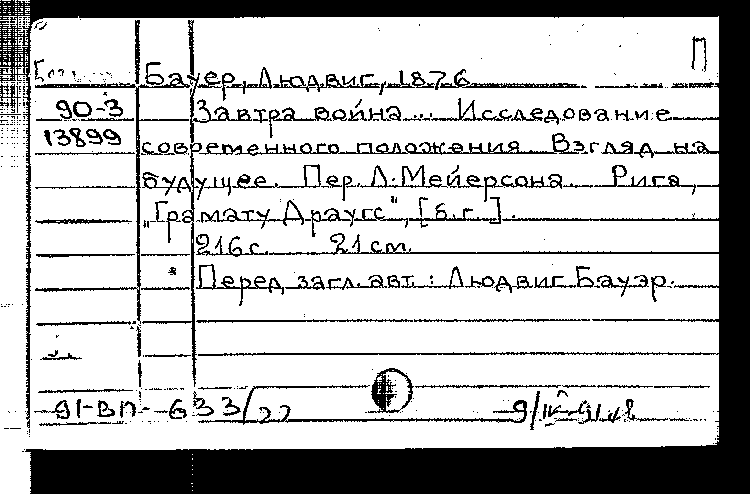 П
Бауер, Людвиг, 1876
90-3 Завтра война... Исследование
13899 современного положения. Взгляд на
будущее. Пер. Л. Мейерсона. Рига,
„Грамату Драугс", [б.г.].
216 с. 21 см.
* Перед загл. авт.: Людвиг Бауэр.
91-ВП-633/22